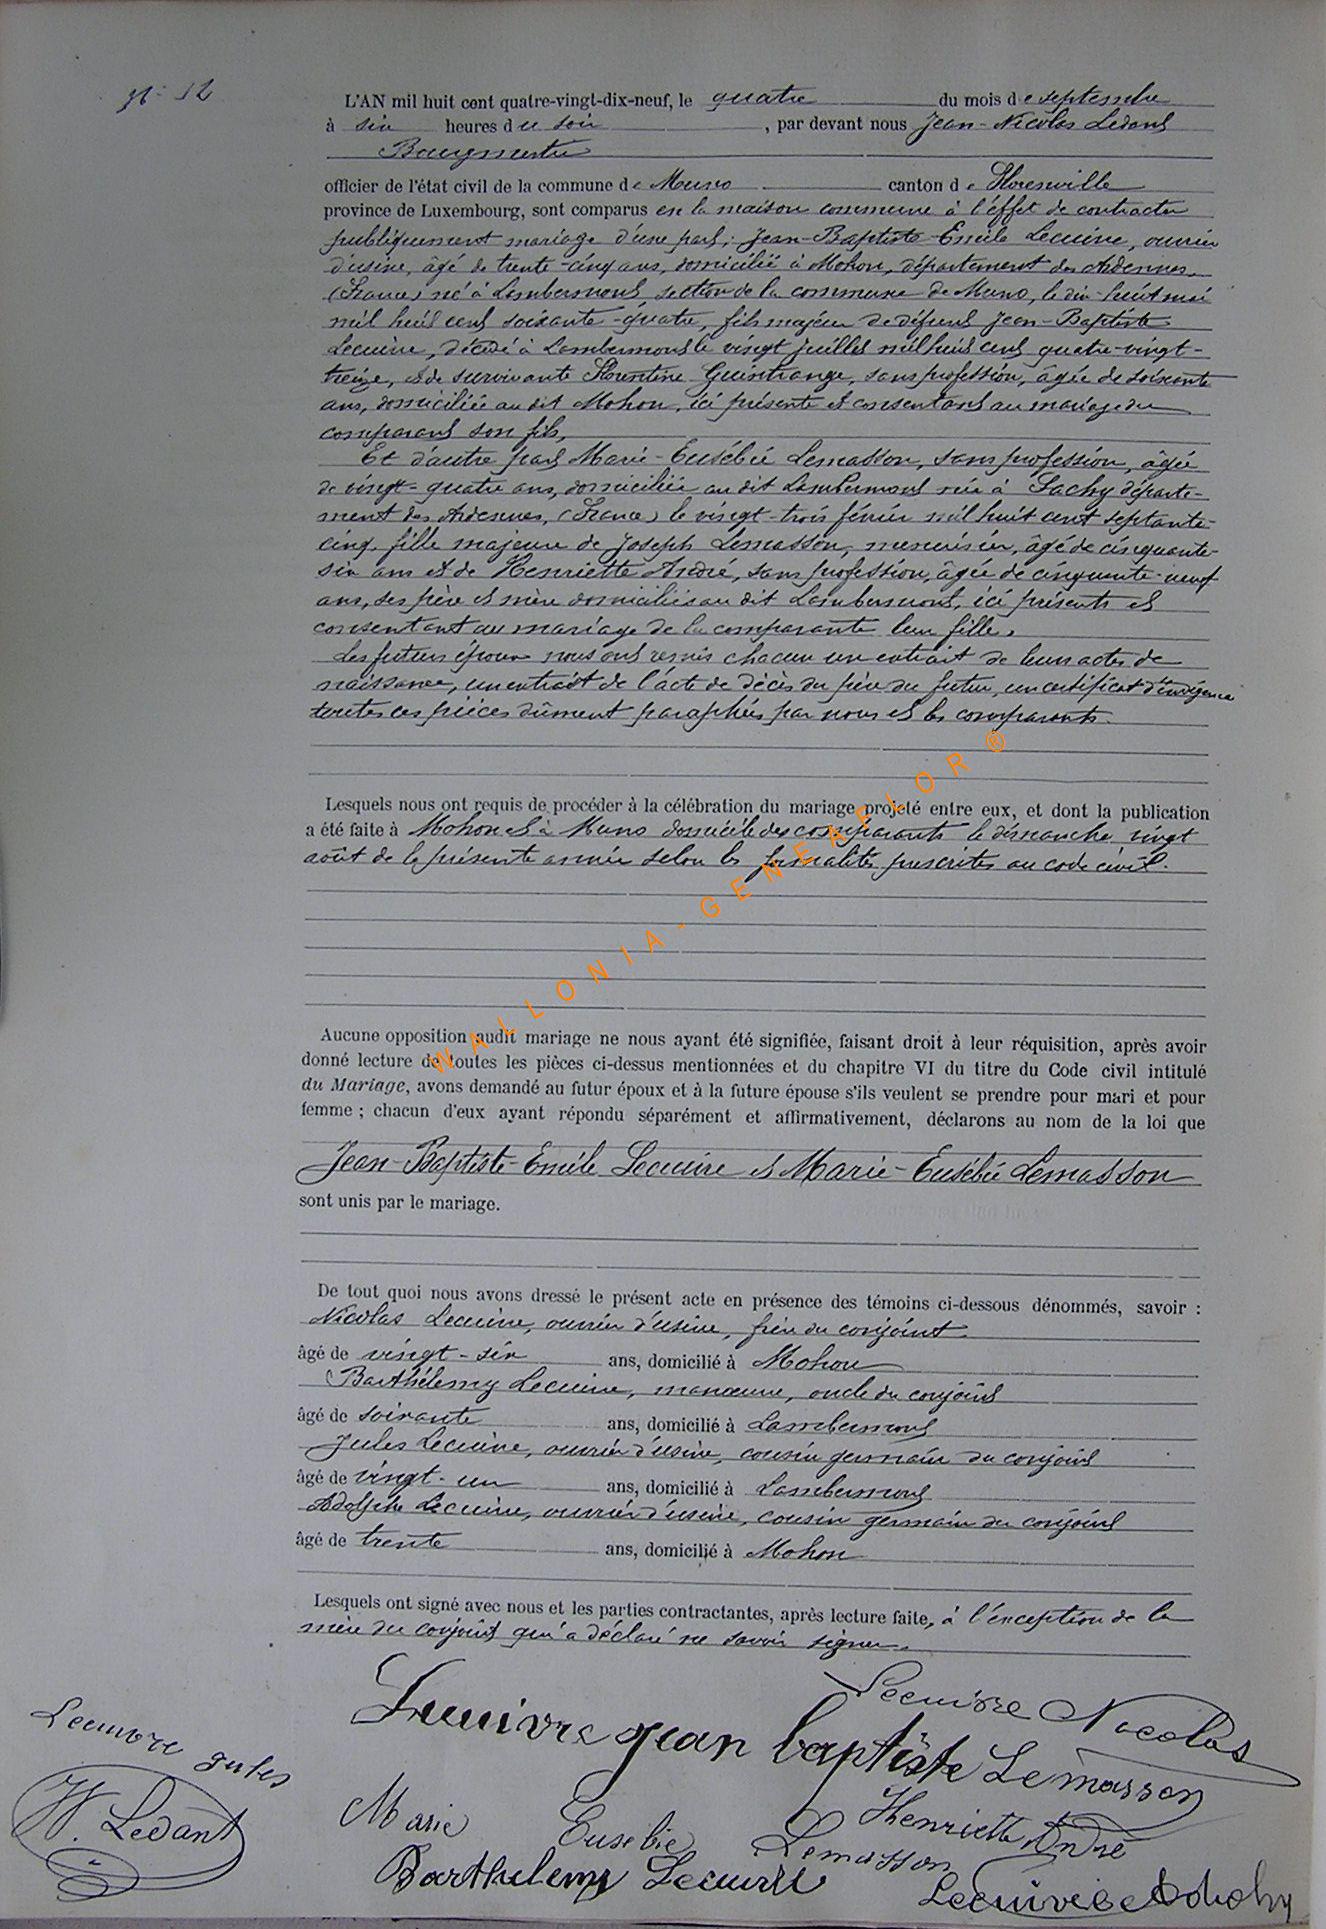 N° 12
L'AN mil huit cent quatre-vingt-dix-neuf, le quatre du mois de septembre
à six heures du soir , par devant nous Jean-Nicolas Ledant
Bourgmestre
officier de l'état civil de la commune de Muno canton de Florenville
province de Luxembourg, sont comparus en la maison commune à l'éffet de contracter
publiquement mariage d'une part; Jean-Baptiste-Emile Lecuivre, ouvrier
d'usine, âgé de trente-cinq ans, domicilié à Mohon, département des Ardennes
(France) né à Lambermont, section de la commune de Muno, le dix-huit mai
mil huit cent soixante-quatre, fils majeur de défunt Jean-Baptiste
Lecuivre, décédé à Lambermont le vingt juillet mil huit cent quatre-vingt-
treize, et de survivante Florentine Guintrange, sans profession, âgée de soixante
ans, domiciliée au dit Mohon, ici présente et consentant au mariage du
comparant son fils,
Et d'autre part Marie-Eusébie Lemasson, sans profession, âgée
de vingt-quatre ans, domiciliée au dit Lambermont née à Sachy départe-
ment des Ardennes, (France) le vingt-trois février mil huit cent septante-
cinq, fille majeure de Joseph Lemasson, menuisier, âgé de cinquante-
six ans et de Henriette André, sans profession, âgée de cinquante-neuf
ans, ses père et mère domiciliés au dit Lambermont, ici présents et
consentant au mariage de la comparante leur fille.
Les futurs époux nous ont remis chacun un extrait de leurs actes de
naissance, un extrait de l'acte de décès du père du futur, un certificat d'indigence
toutes ces pièces dûment paraphées par nous et les comparants.
Lesquels nous ont requis de procéder à la célébration du mariage projeté entre eux, et dont la publication
a été faite à Mohon et à Muno domicile des comparants le dimanche vingt
août de la présente année selon les formalités prescrites au code civil.
WALLONIA-GENEAFLOR®
Aucune opposition audit mariage ne nous ayant été signifiée, faisant droit à leur réquisition, après avoir
donné lecture de toutes les pièces ci-dessus mentionnées et du chapitre VI du titre du Code civil intitulé
du Mariage, avons demandé au futur époux et à la future épouse s'ils veulent se prendre pour mari et pour
femme ; chacun d'eux ayant répondu séparément et affirmativement, déclarons au nom de la loi que
Jean-Baptiste-Emile Lecuivre et Marie-Eusébie Lemasson
sont unis par le mariage.
De tout quoi nous avons dressé le présent acte en présence des témoins ci-dessous dénommés, savoir :
Nicolas Lecuivre, ouvrier d'usine, frère du conjoint
âgé de vingt-six ans, domicilié à Mohon
Barthélemy Lecuivre, manœuvre, oncle du conjoint
âgé de soixante ans, domicilié à Lambermont
Jules Lecuivre, ouvrier d'usine, cousin germain du conjoint
âgé de vingt-un ans, domicilié à Lambermont
Adolphe Lecuivre, ouvrier d'usine, cousin germain du conjoint
âgé de trente ans, domicilié à Mohon
Lesquels ont signé avec nous et les parties contractantes, après lecture faite, à l'exception de la
mère du conjoint qui a déclaré ne savoir signer.
Lecuivre Nicolas
Lecuivre jean baptiste Lemasson
Lecuivre jules
N. Ledant
Henriette André
Marie Eusebie Lemasson
Barthelemy Lecuivre
Lecuivre